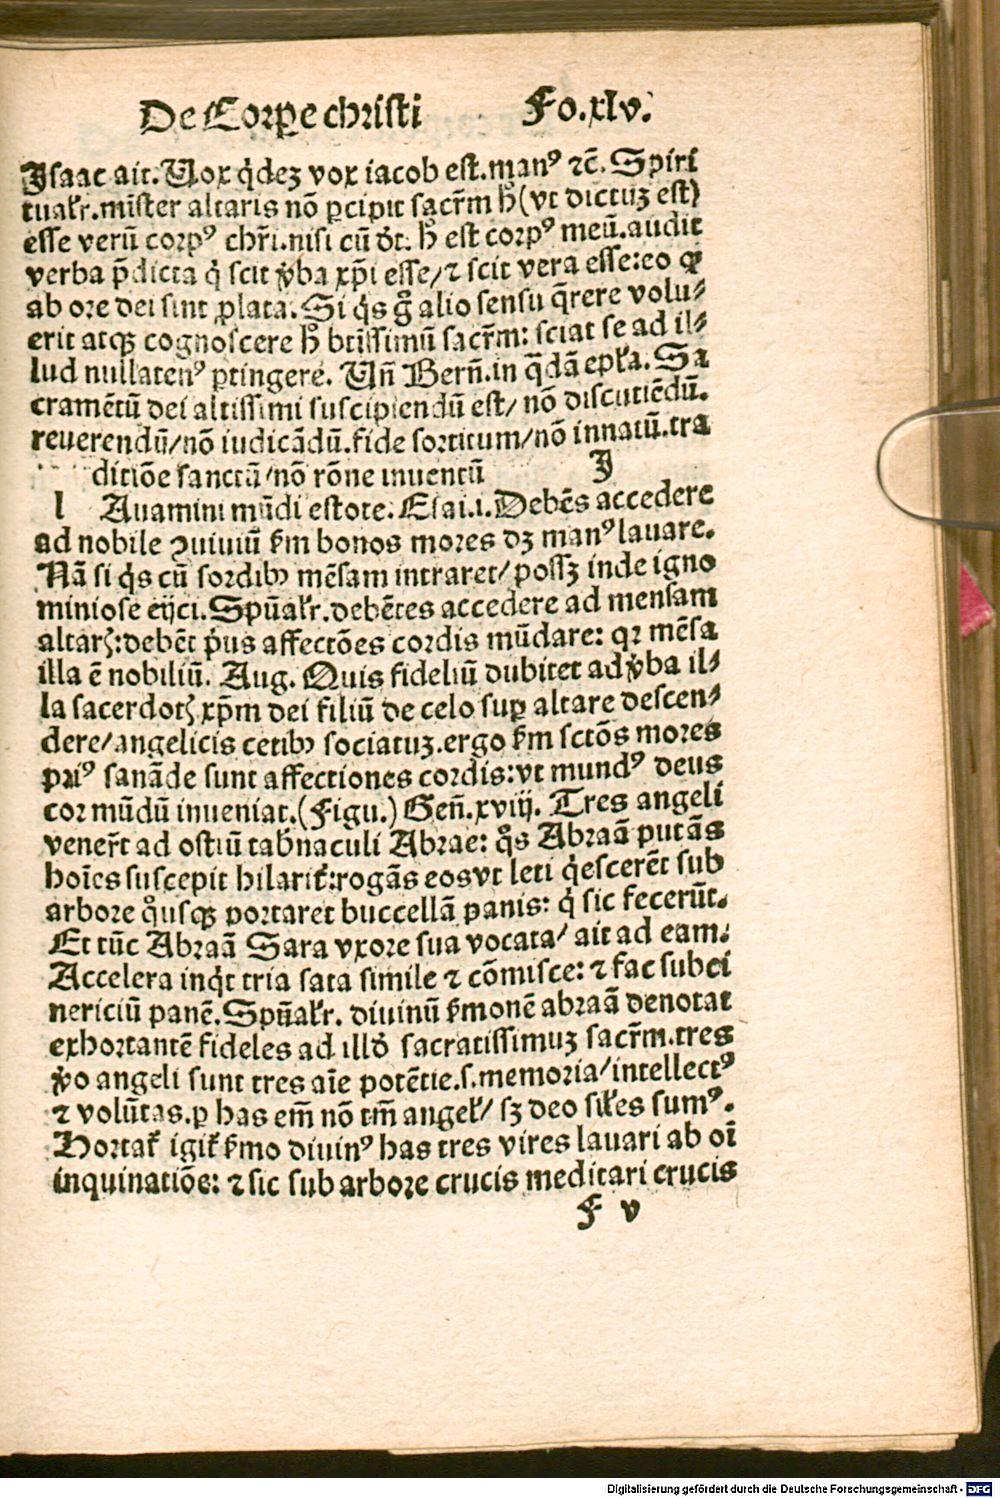 De Corꝑe christi Fo.xlv.
Isaac ait. Uox q̇dez vox iacob est. manꝰ ⁊c̄. Spiri
tualr̄. mīster altaris nō ꝑcipit sacr̄m h̄ (vt dictuꝫ est)
esse verū corpꝰ chr̄i. nisi cū d̓t. h̄ est corpꝰ meū. audit
verba p̄dicta q̇ scit v̓ba xp̄i esse/ ⁊ scit vera esse: eo ꝙ
ab ore dei sint ꝓlata. Si q̇s g̊ alio sensu q̄rere volu⸗
erit atqꝫ cognoscere h̊ btīssimū sacr̄m: sciat se ad il⸗
lud nullatenꝰ ꝑtingere. Un̄ Bern̄. in q̄dā epl̄a. Sa
cramētū dei altissimi suscipiendū est/ nō discutiēdū.
reuerendū/ nō iudicādū. fide sortitum/ nō innatū. tra
ditiōe sanctū/ nō rōne inuentū I
l Auamini mūdi estote. Esai.i. Debēs accedere
ad nobile ꝯuiuiū s̄m bonos mores dꝫ manꝰ lauare.
Nā si q̇s cū sordibꝰ mēsam intraret/ possꝫ inde igno
miniose eijci. Spūalr̄. debētes accedere ad mensam
altarꝭ: debēt pᵒus affectōes cordis mūdare: qꝛ mēsa
illa ē nobiliū. Aug. Quis fideliū dubitet ad v̓ba il⸗
la sacerdotꝭ xp̄m dei filiū de celo suꝑ altare descen⸗
dere/ angelicis cetibꝰ sociatuꝫ. ergo s̄m sctōs mores
pr̄iꝰ sanāde sunt affectiones cordis: vt mundꝰ deus
cor mūdū inueniat. (Figu.) Gen̄.xviij. Tres angeli
vener̄t ad ostiū tab̄naculi Abrae: q̊s Abraā putās
hoīes suscepit hilarit̓: rogās eos vt leti q̇escerēt sub
arbore q̊usqꝫ portaret buccellā panis: q̇ sic fecerūt.
Et tūc Abraā Sara vxore sua vocata/ ait ad eam:
Accelera inq̇t tria sata simile ⁊ cōmisce: ⁊ fac subci
nericiū panē. Spūalr̄. diuinū s̓monē abraā denotat
exhortantē fideles ad illd̓ sacratissimuꝫ sacr̄m. tres
v̓o angeli sunt tres aīe potētie. s. memoria/ intellectꝰ
⁊ volūtas. ꝑ has em̄ nō tm̄ angel̓/ sꝫ deo sil̄es sumꝰ.
Hortat̓ igit̓ s̓mo diuinꝰ has tres vires lauari ab oī
inquinatiōe: ⁊ sic sub arbore crucis meditari crucis
F v
Digitalisierung gefördert durch die Deutsche Forschungsgemeinschaft - DFG